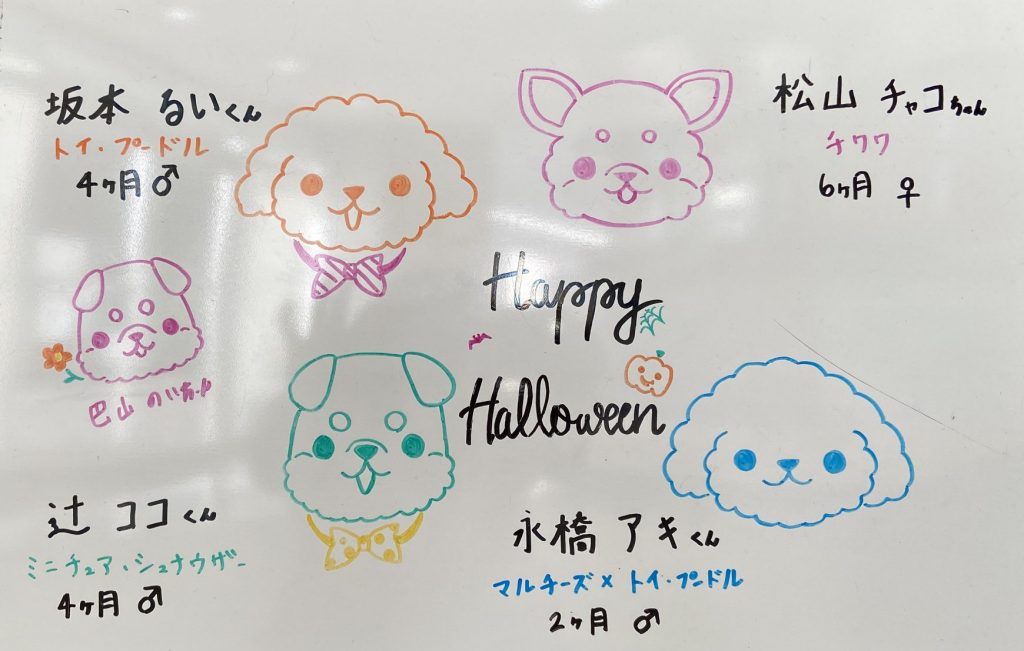 坂本 るいくん
トイ・プードル
4ヶ月 ♂
松山 チャコちゃん
チワワ
6ヶ月 ♀
Happy
Halloween
巴山 のいちゃん
辻 ココくん
ミニチュア・シュナウザー
4ヶ月 ♂
永橋 アキくん
マルチーズ×トイ・プードル
2ヶ月 ♂